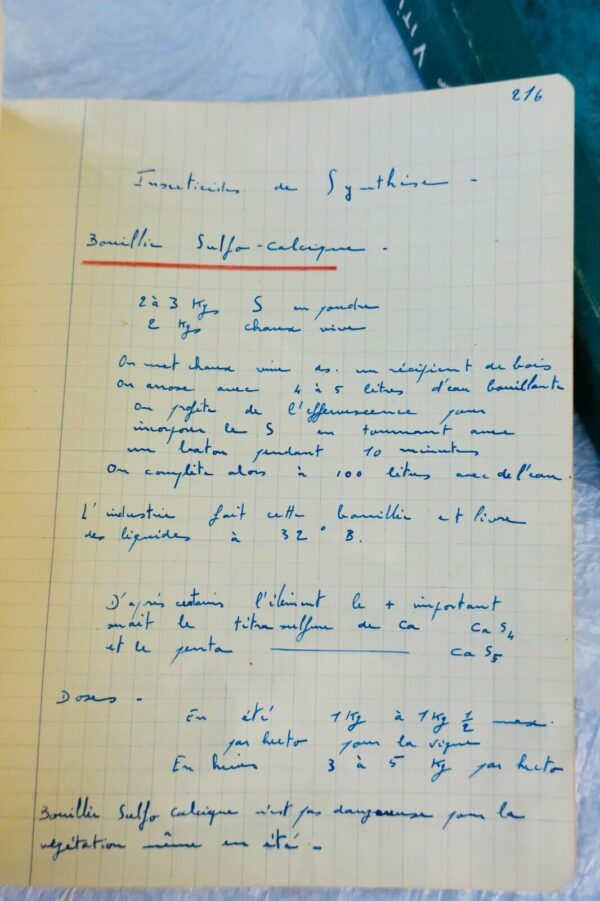 VITI
216
Insecticides de Synthèse -
Bouillie Sulfo-calcique -
2 à 3 Kgs S en poudre
2 Kgs chaux vive
On met chaux vive ds. un récipient de bois
On arrose avec 4 à 5 litres d'eau bouillante
On profite de l'effervescence pour
incorporer le S en tournant avec
un baton pendant 10 minutes
On complète alors à 100 litres avec de l'eau.
L'industrie fait cette bouillie et livre
des liquides à 32° B.
D'après certains l'élément le + important
serait le tétrasulfure de Ca CaS4
et le penta ——— CaS5
Doses -
En été 1 Kg à 1 Kg 1/2 max.
par hecto pour la vigne
En hiver 3 à 5 Kg par hecto
Bouillie Sulfo calcique n'est pas dangereuse pour la
végétation même en été -